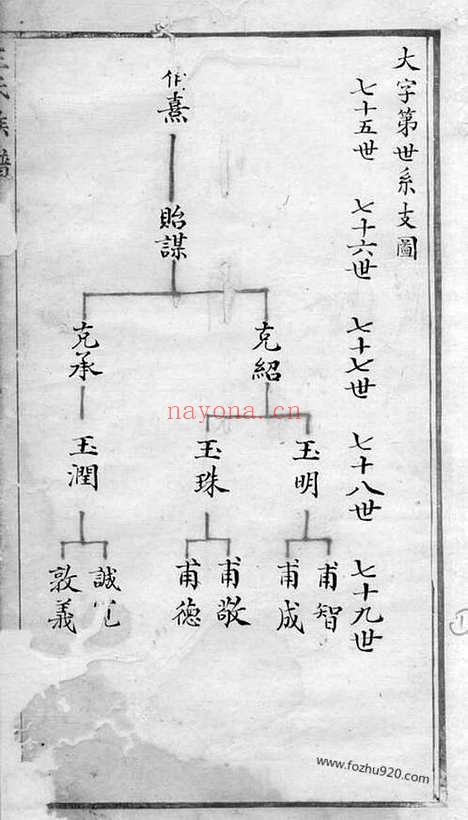 大字第世系支圖
七十五世 七十六世 七十七世 七十八世 七十九世
熹
貽謀
克紹
克承
玉明
玉珠
玉潤
甫智
甫成
甫敬
甫德
誠
敦義
氏族譜
nayona.cn
www.fozhu920.com